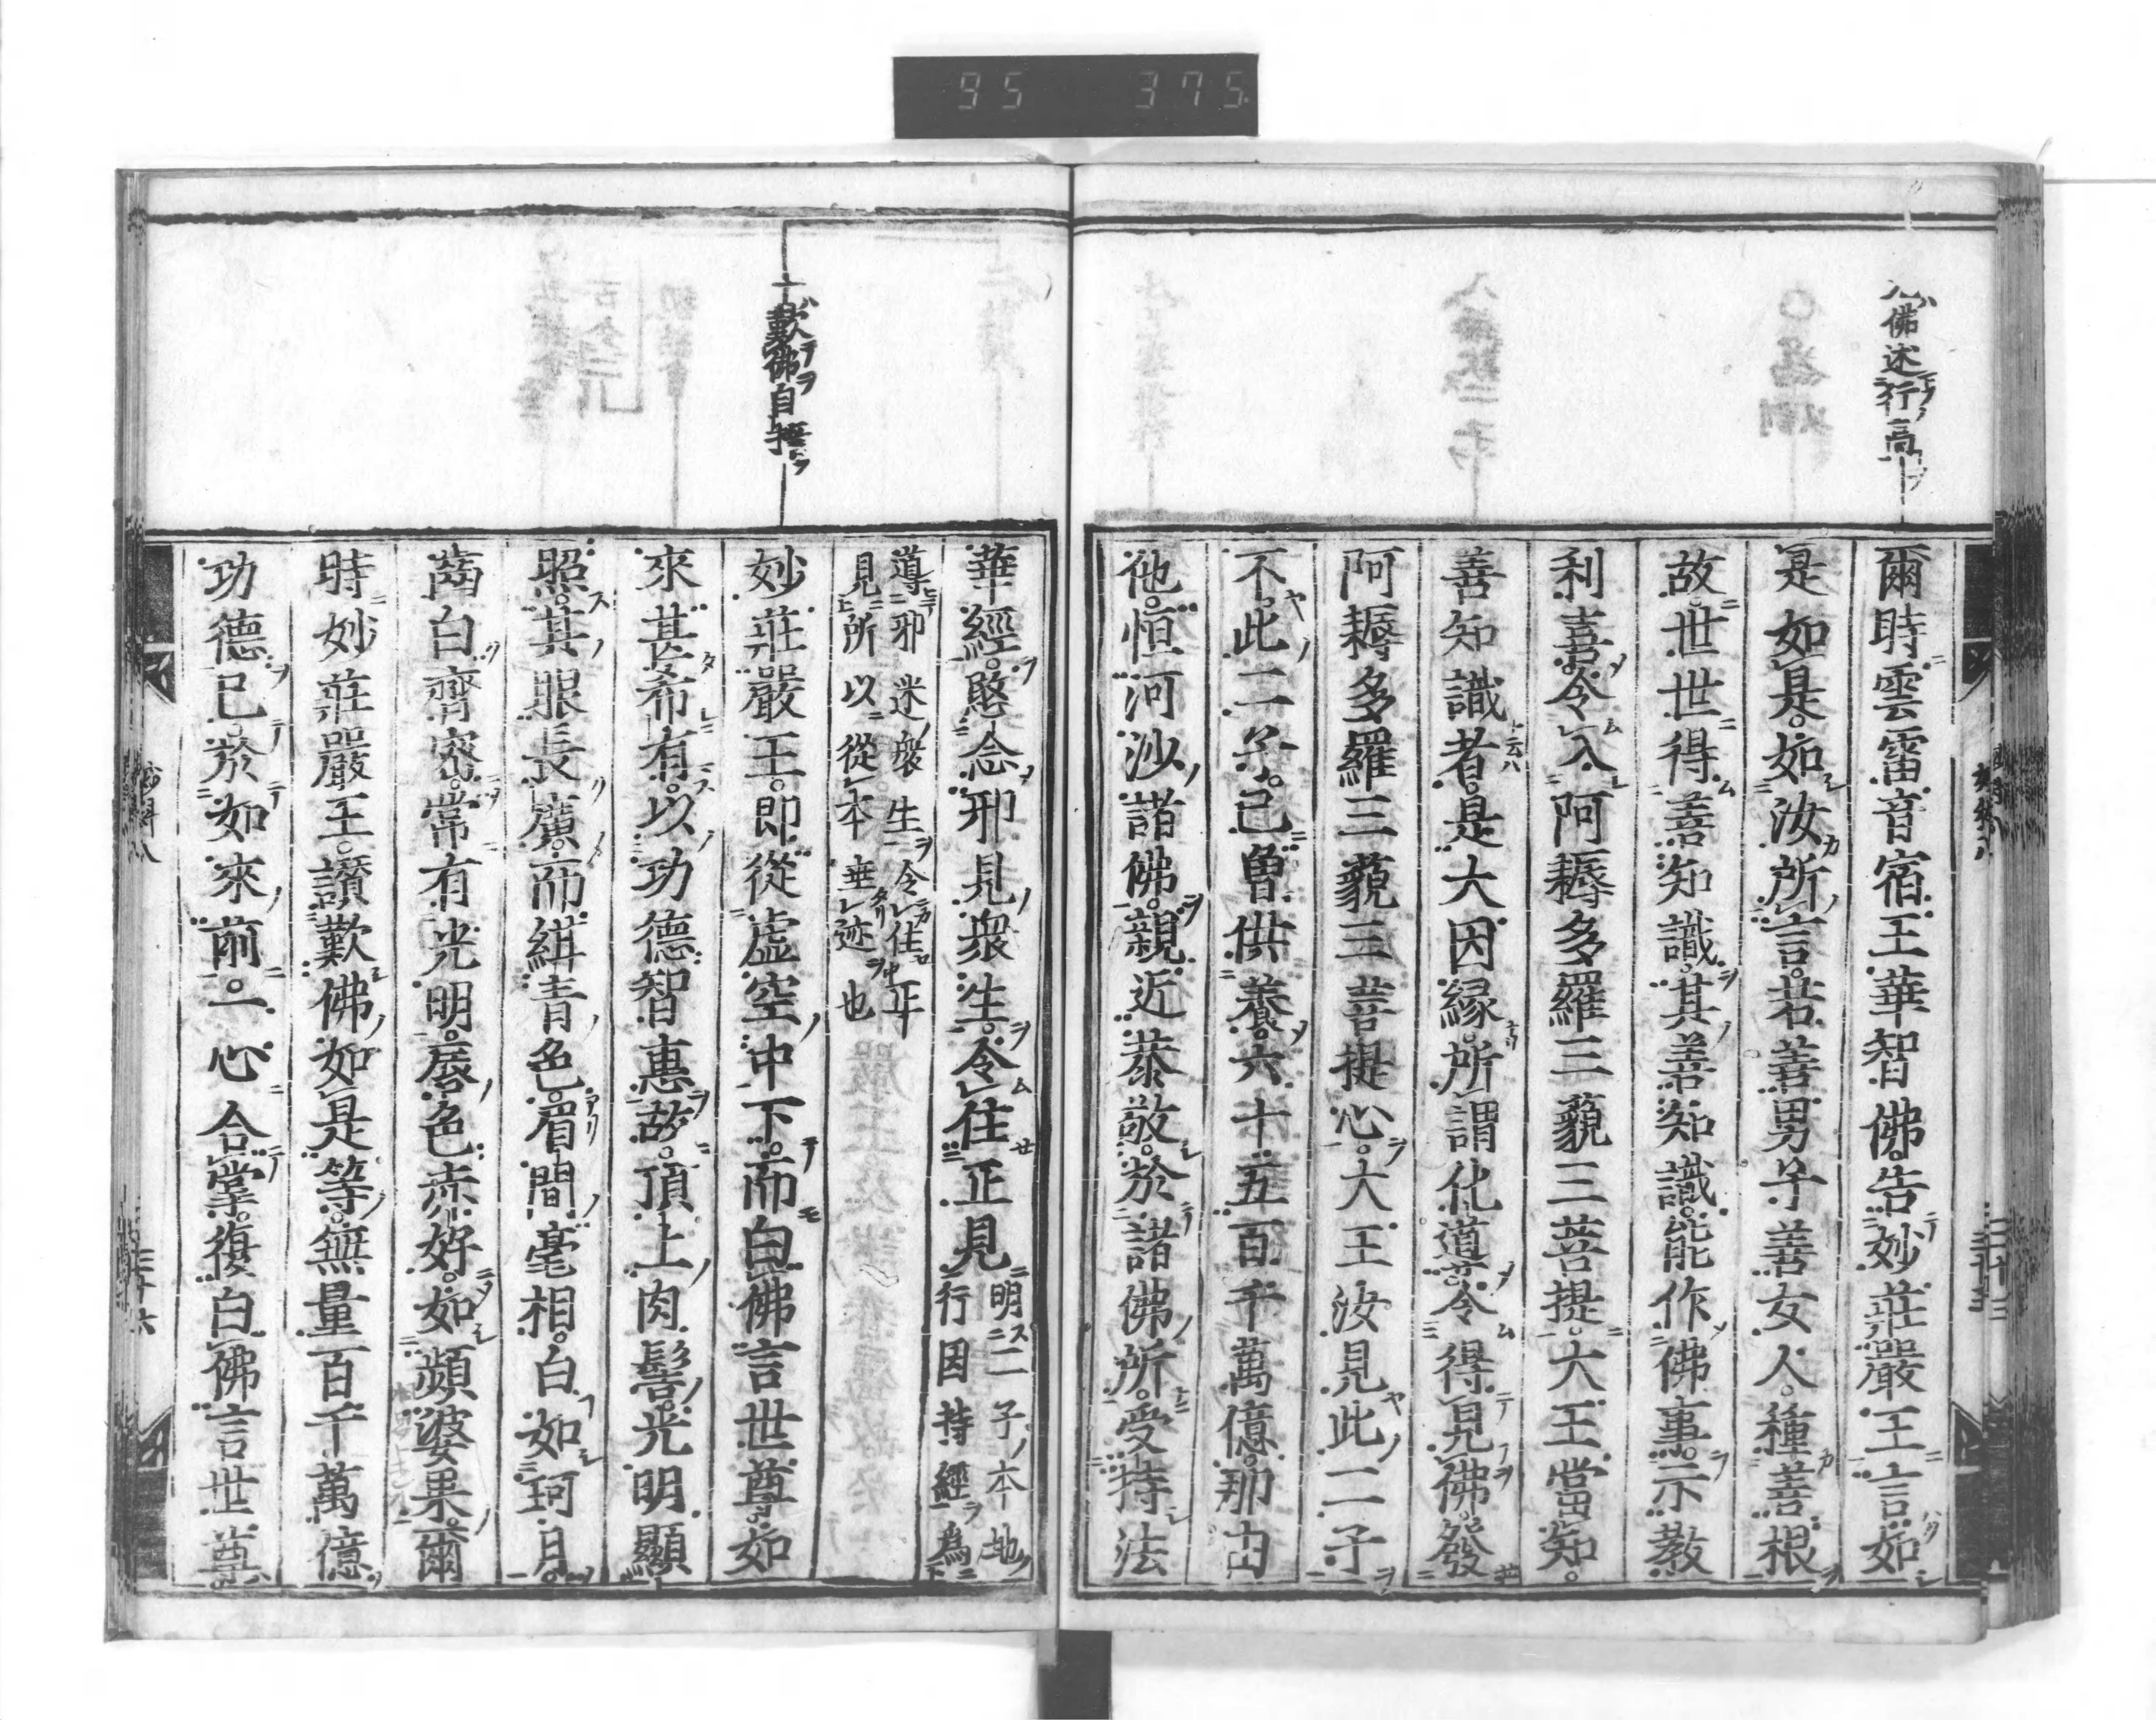 95 375
九佛述行高
爾時雲雷音宿王華智佛告妙莊嚴王言如
是如是如汝所言若善男子善女人種善根
故世世得善知識其善知識能作佛事示教
利喜令入阿耨多羅三藐三菩提大王當知
善知識者是大因緣所謂化導令得見佛發
阿耨多羅三藐三菩提心大王汝見此二子
不此二子已曾供養六十五百千萬億那由
他恒河沙諸佛親近恭敬於諸佛所受持法
華經愍念邪見衆生令住正見
明二子本地
行因持經為
導邪迷衆生令住中正
見所以從本垂迹也
十歎佛自誓
妙莊嚴王即從虛空中下而白佛言世尊如
來甚希有以功德智惠故頂上肉髻光明顯
照其眼長廣而紺青色眉間毫相白如珂月
齒白齊密常有光明唇色赤好如頻婆果爾
時妙莊嚴王讃歎佛如是等無量百千萬億
功德已於如來前一心合掌復白佛言世尊